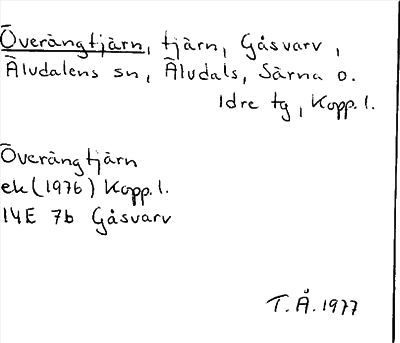 Överängtjärn, tjärn, Gåsvarv,
Älvdalens sn, Älvdals, Särna o.
Idre tg, Kopp. l.
Överängtjärn
ek (1976) Kopp. l.
14E 7b Gåsvarv
T. Å. 1977